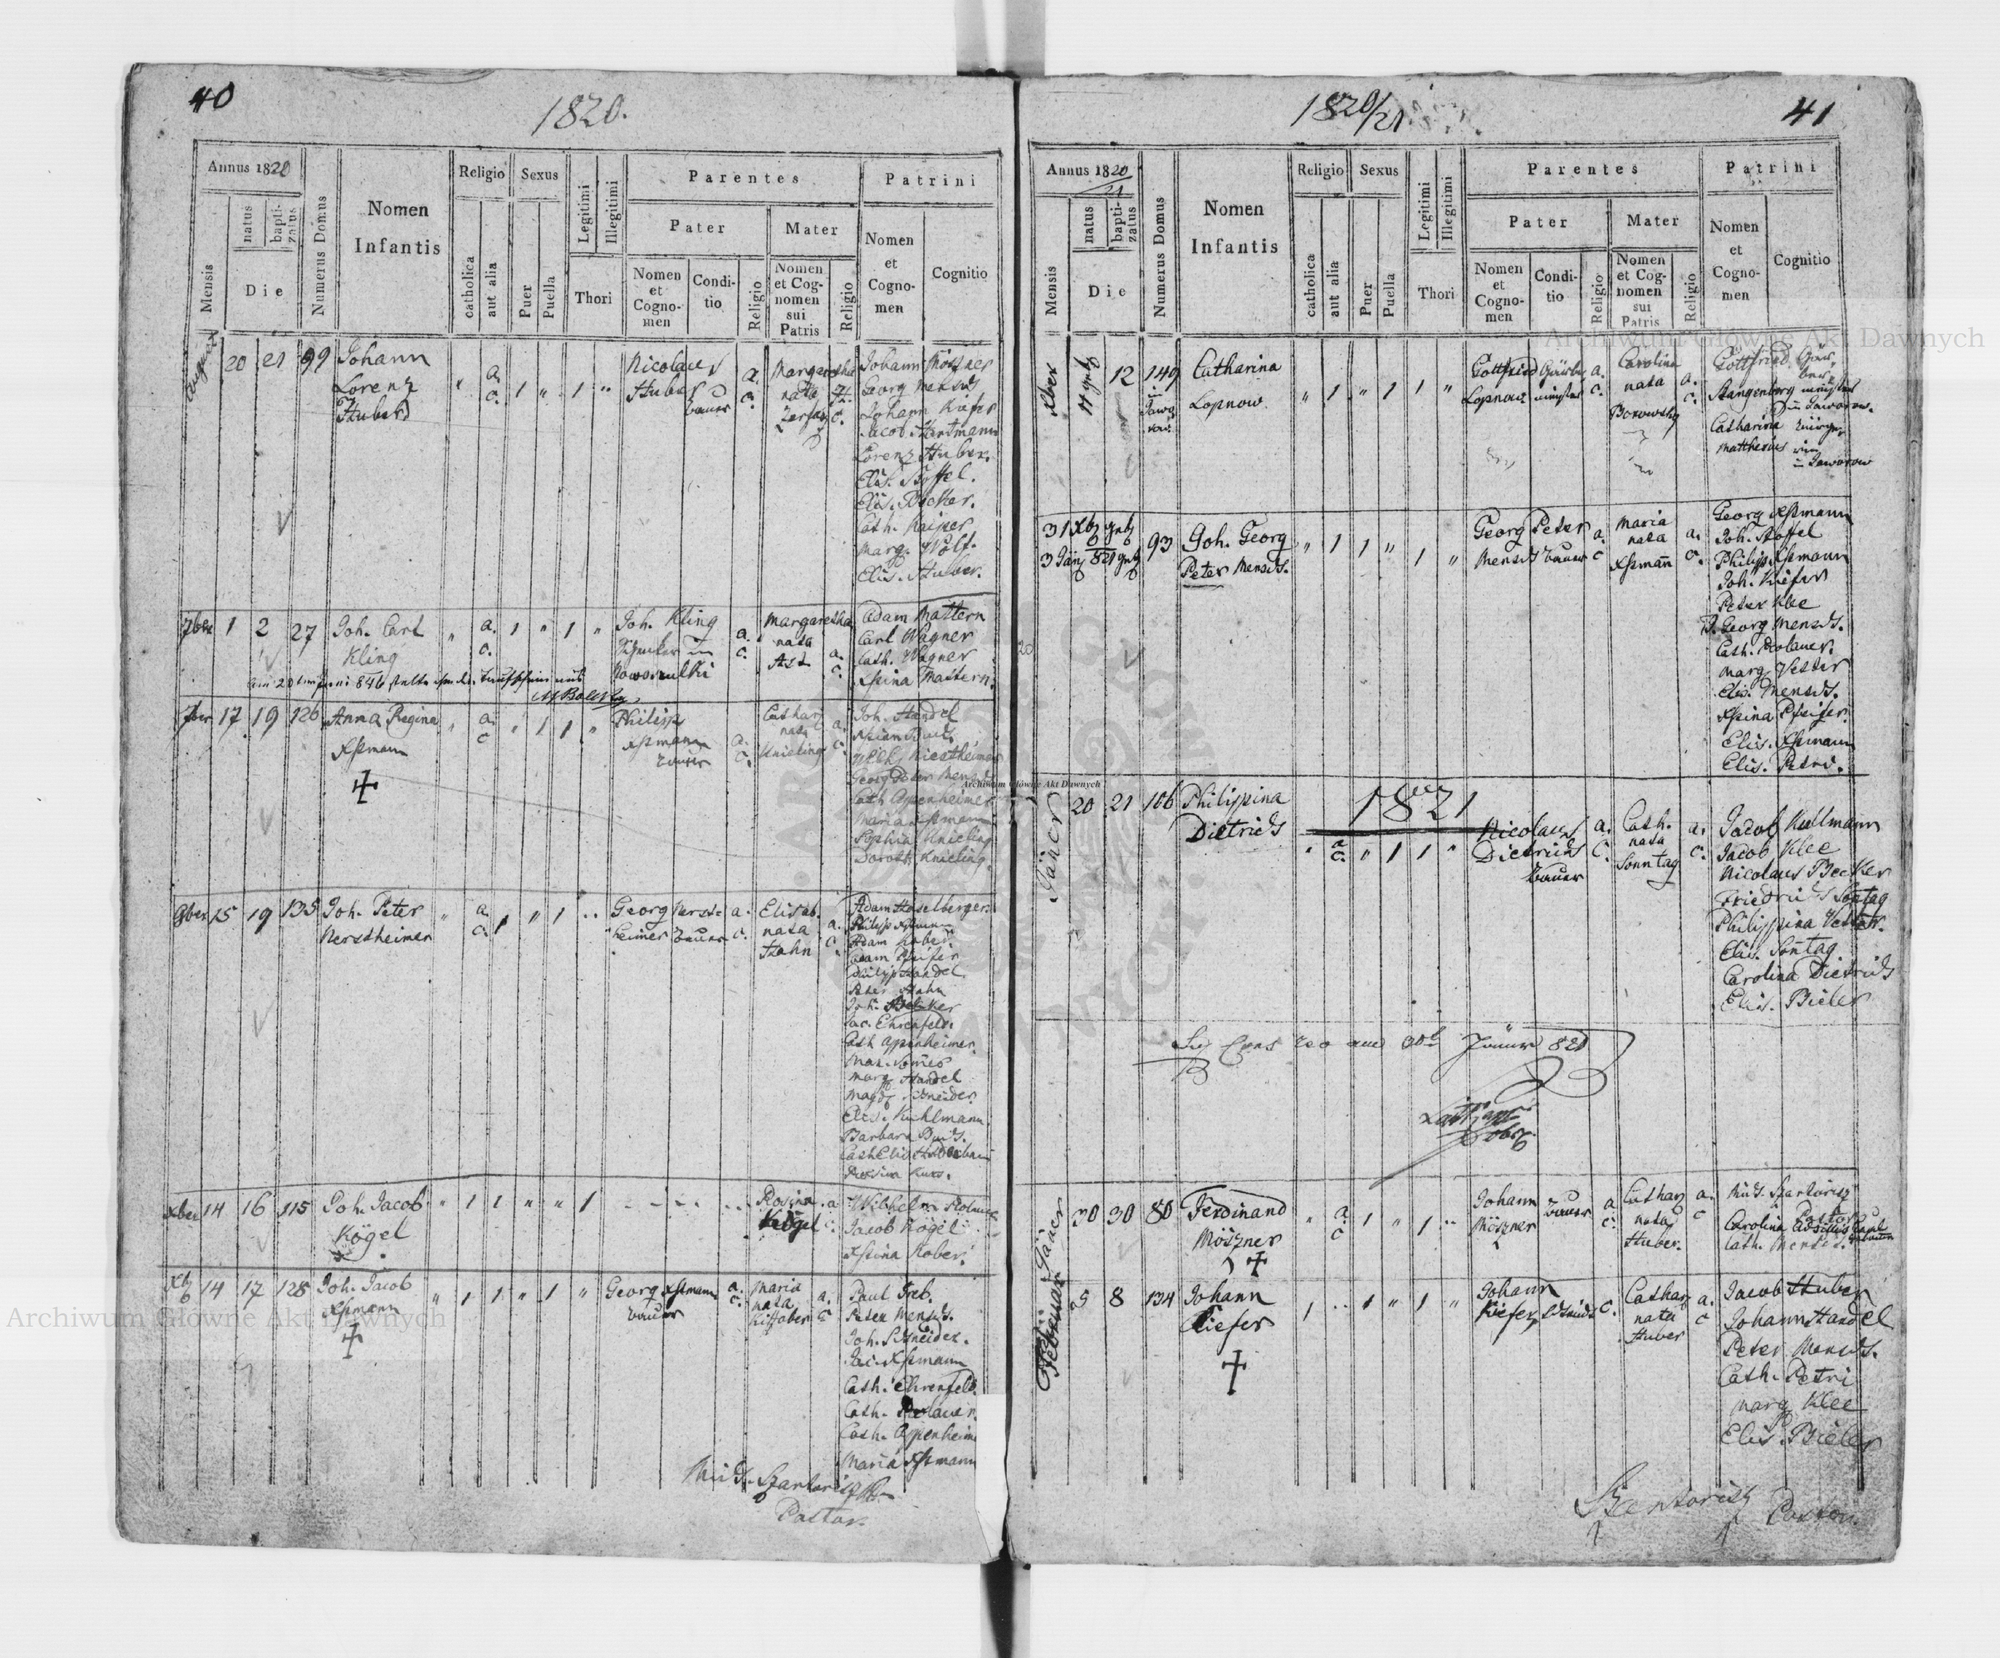 40
1820.
Annus 1820
Mensis
natus
bapti-
zatus
Die
Numerus Domus
Nomen
Infantis
Religio
catholica
aut alia
Sexus
Puer
Puella
Legitimi
Illegitimi
Thori
Parentes
Pater
Nomen
et
Cogno-
men
Condi-
tio
Religio
Mater
Nomen
et Cog-
nomen
sui
Patris
Religio
Patrini
Nomen
et
Cogno-
men
Cognitio
August
20 21 99 Johann
Lorenz
Huber
" a. c. 1 " 1 "
Nicolaus
Huber
bauer
a. c.
Margaretha
nata
a. c.
Johann Mößner
Georg Mensch
Johann Kiefer
Jacob Hartmann
Lorenz Huber.
Elis. Stoffel.
Elis. Becker.
Cath. Kaiser
Marg. Wolf.
Elis. Huber.
7ber 1 2 27 Joh. Carl
Kling
" a. c. 1 " 1 "
Joh. Kling
in
Nowosulki
a. c.
Margaretha
nata
Ast
a. c.
Adam Mattern
Carl Wagner
Cath. Wagner
Xstina Mattern.
7ber 17 19 126 Anna Regina
Xstmann
" a. c " 1 1 "
Philipp
Xstmann
bauer
a. c.
Cathar
nata
Knieling
a. c.
Joh. Handel
Georg Peter Mensch
Cath. Oppenheimer
Maria Xstmann
Sophia Knieling
Doroth. Knieling.
9ber 15 19 135 Joh. Peter
Kerstheimer
" a. c. 1 " 1 "
Georg Kerst-
heimer bauer
a. c.
Elisab.
nata
Hahn
a. c.
Adam Haselberger.
Philipp Xstmann
Adam Kober.
Adam Pfeifer
Philipp Handel
Peter Hahn
Joh. Becker
Jac. Ehrenfeld.
Cath. Oppenheimer.
Marg. Handel
Magd. Schneider.
Elis. Kuhlmann
Barbara
Xber 14 16 115 Joh. Jacob
Kögel
" 1 1 " " 1
Rosina
Kögel
a. c.
Wilhelm
Jacob Kögel
Xstina Kober.
Xb 14 17 128 Joh. Jacob
Xstmann
" 1 1 " 1 "
Georg Xstmann
bauer
a. c.
Maria
nata
a. c
Paul Treb.
Peter Mensch.
Joh. Schneider.
Jac. Xstmann
Cath. Ehrenfeld.
Cath.
Cath. Oppenheim
Maria Xstmann
Mich. Szantorisz
Pastor.
1820/21
41
Annus 1820
21
Mensis
natus
bapti-
zatus
Die
Numerus Domus
Nomen
Infantis
Religio
catholica
aut alia
Sexus
Puer
Puella
Legitimi
Illegitimi
Thori
Parentes
Pater
Nomen
et
Cogno-
men
Condi-
tio
Religio
Mater
Nomen
et Cog-
nomen
sui
Patris
Religio
Patrini
Nomen
et
Cogno-
men
Cognitio
Xber
12 149
in
Jawo
row.
Catharina
Lopnow
" 1 " 1 1 "
Gottfried
Lopnow
a. c.
Carolina
nata
Borowsky
a. c.
Gottfried
Stangenberg
in Jaworow.
Catharina
Mattheus
in Jaworow
31 Xb
3 Jän 821
93 Joh. Georg
Peter Mensch.
" 1 1 " 1 "
Georg Peter
Mensch bauer
a. c
Maria
nata
Xstmann
a. c.
Georg Xstmann
Joh. Stoffel
Philipp Xstmann
Joh. Kiefer
Peter Klee
J. Georg Mensch.
Cath.
Marg. Vetter
Elis. Mensch.
Xstina Pfeifer.
Elis. Xstmann
Elis. Petri.
1821
Jäner
20 21 106 Philippina
Dietrich
" a. c. " 1 1 "
Nicolaus
Dietrich
bauer
a. c.
Cath.
nata
Sonntag
a. c.
Jacob Kullmann
Jacob Klee
Nicolaus Becker
Friedrich Sontag
Philippina Vetter.
Elis. Sontag.
Carolina Dietrich
Elis. Bieler
Jäner
30 30 80 Ferdinand
Möszner
" a. c 1 " 1 "
Johann
Möszner
bauer
a. c.
Cathar
nata
Huber.
a. c
Mich. Szantorisz
Pastor
Carolina
Cath. Mensch.
Februar
5 8 134 Johann
Kiefer
1 " 1 " 1 "
Johann
Kiefer
c.
Cathar
nata
Huber
a. c
Jacob Huber
Johann Handel
Peter Mensch.
Cath. Petri
Marg. Klee
Elis. Bieler
Szantorisz Pastor.
Archiwum Główne Akt Dawnych
Archiwum Główne Akt Dawnych
Archiwum Główne Akt Dawnych